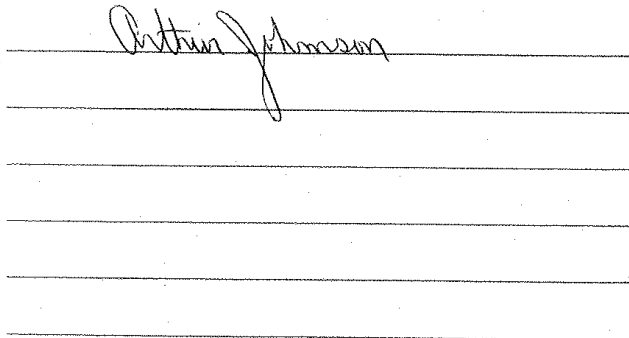 Arthur Johnson